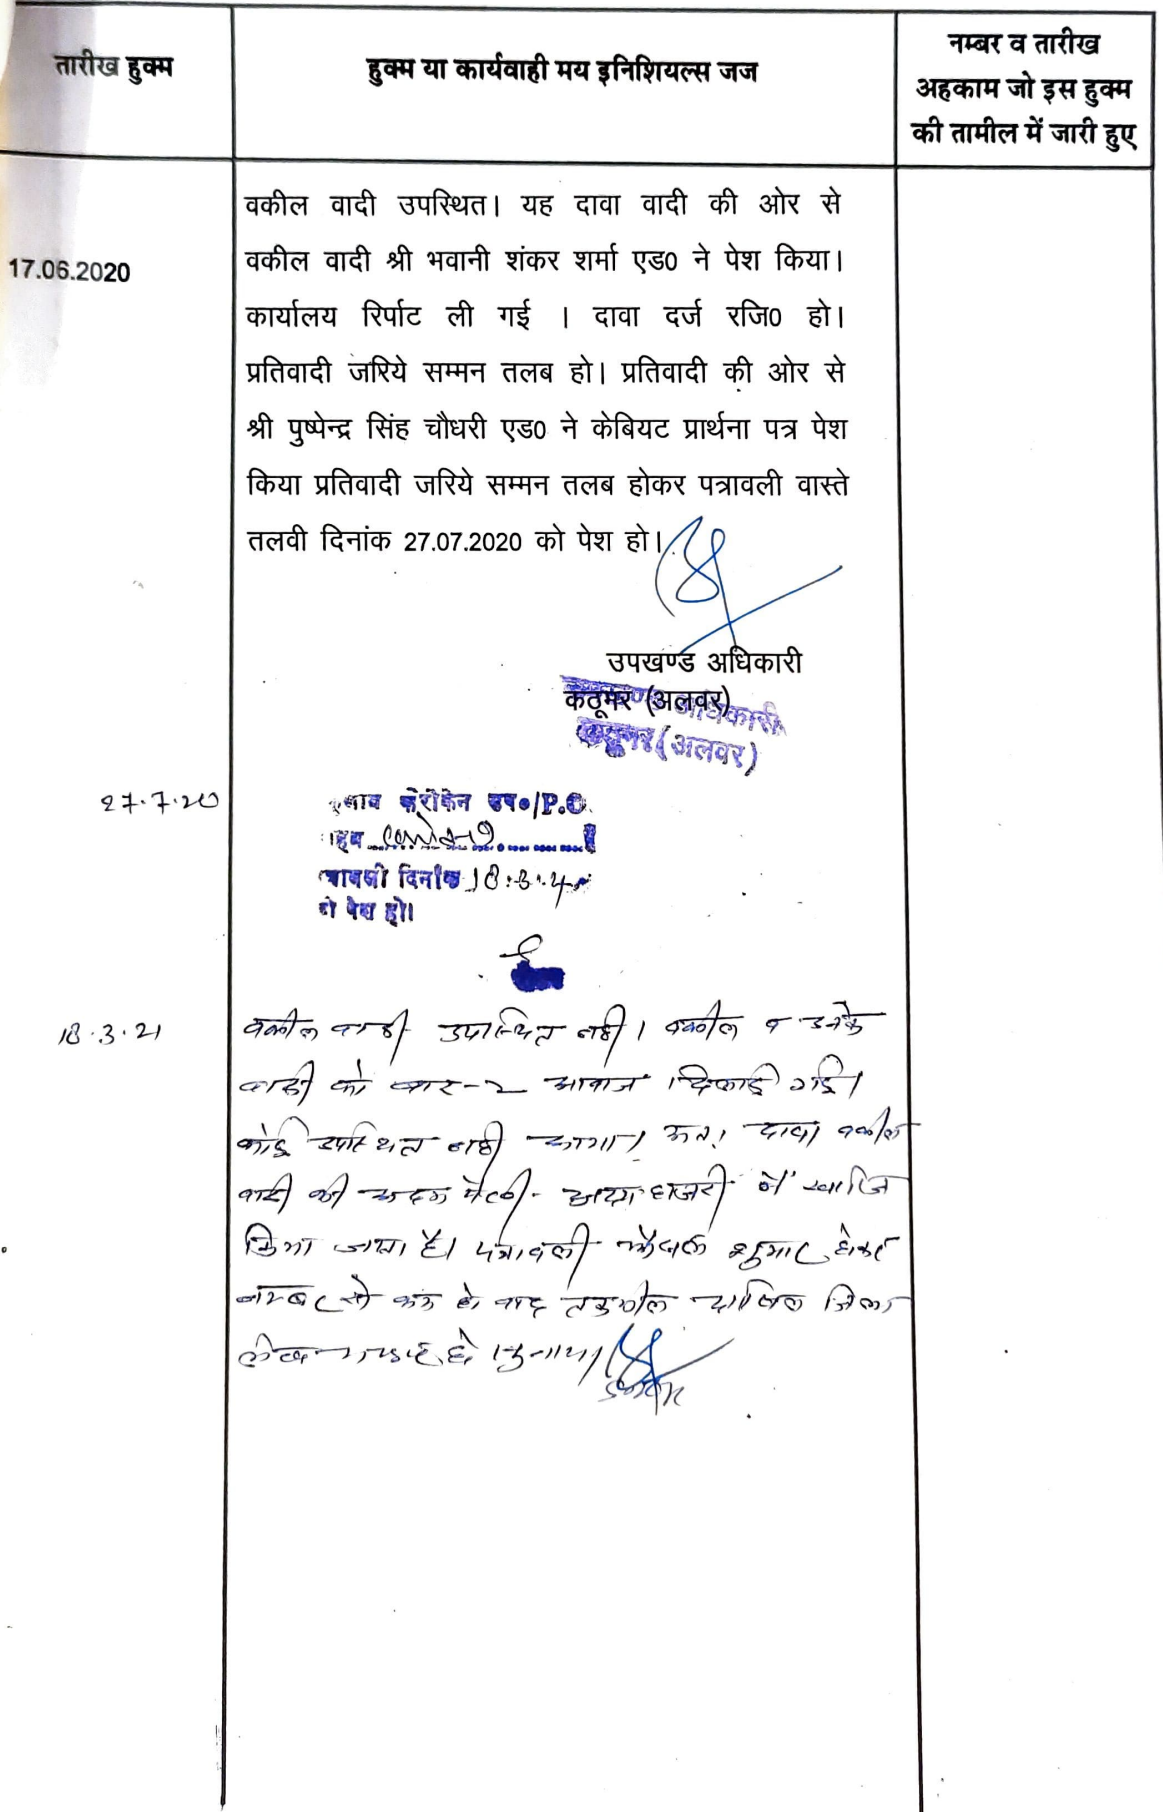 तारीख हुक्म
हुक्म या कार्यवाही मय इनिशियल्स जज
नम्बर व तारीख
अहकाम जो इस हुक्म
की तामील में जारी हुए
17.06.2020
वकील वादी उपस्थित। यह दावा वादी की ओर से
वकील वादी श्री भवानी शंकर शर्मा एड0 ने पेश किया।
कार्यालय रिर्पाट ली गई । दावा दर्ज रजि0 हो।
प्रतिवादी जरिये सम्मन तलब हो। प्रतिवादी की ओर से
श्री पुष्पेन्द्र सिंह चौधरी एड0 ने केबियट प्रार्थना पत्र पेश
किया प्रतिवादी जरिये सम्मन तलब होकर पत्रावली वास्ते
तलवी दिनांक 27.07.2020 को पेश हो।
उपखण्ड अधिकारी
कठूमर (अलवर)
अधिकारी
कठूमर (अलवर)
27.7.20
P.O.
दिनांक 18.3.21
पेश हो।
18.3.21
वकील वादी उपस्थित नही। वकील व उनके
वादी को बार-2 आवाज दिलाई गई।
कोई उपस्थित नही आया। अतः दावा वकील
वादी की अदम पैरवी अदम हाजरी में खारिज
किया जाता है। पत्रावली फैसल शुमार होकर
नम्बर से कम हो बाद तकमील दाखिल जिला
हो। सुनाया।